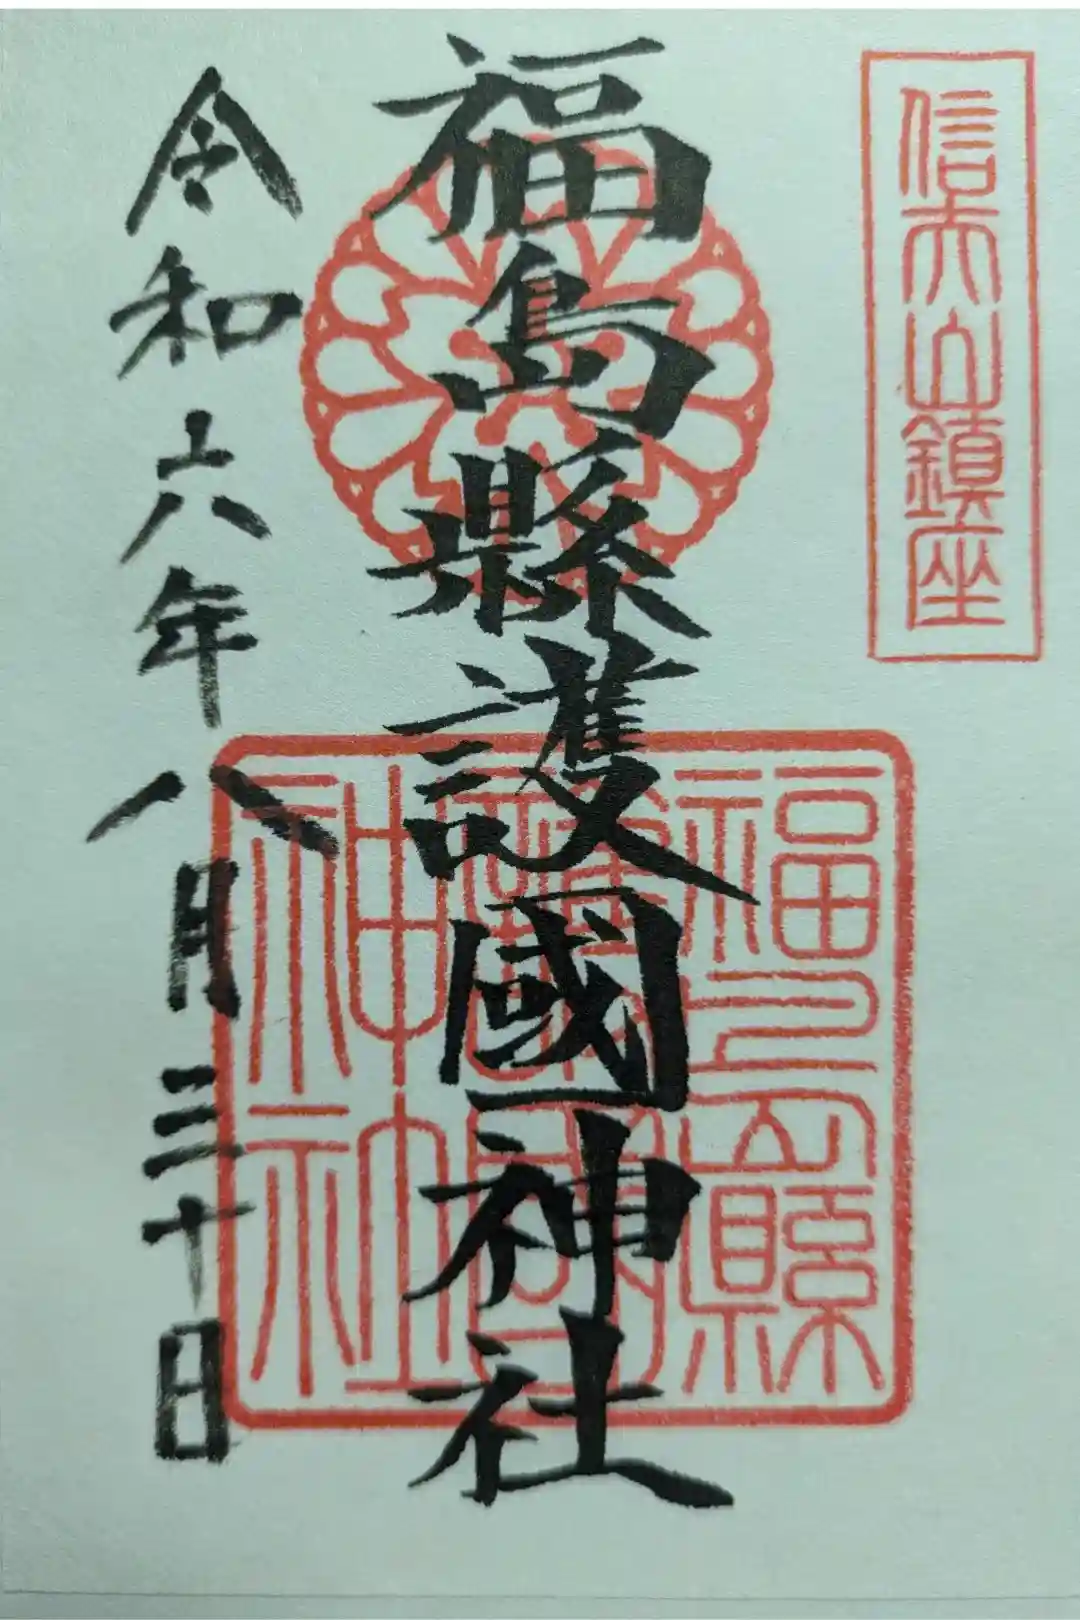 信夫山鎮座
福島縣護國神社
福島縣
護國
神社
令和六年八月三十日